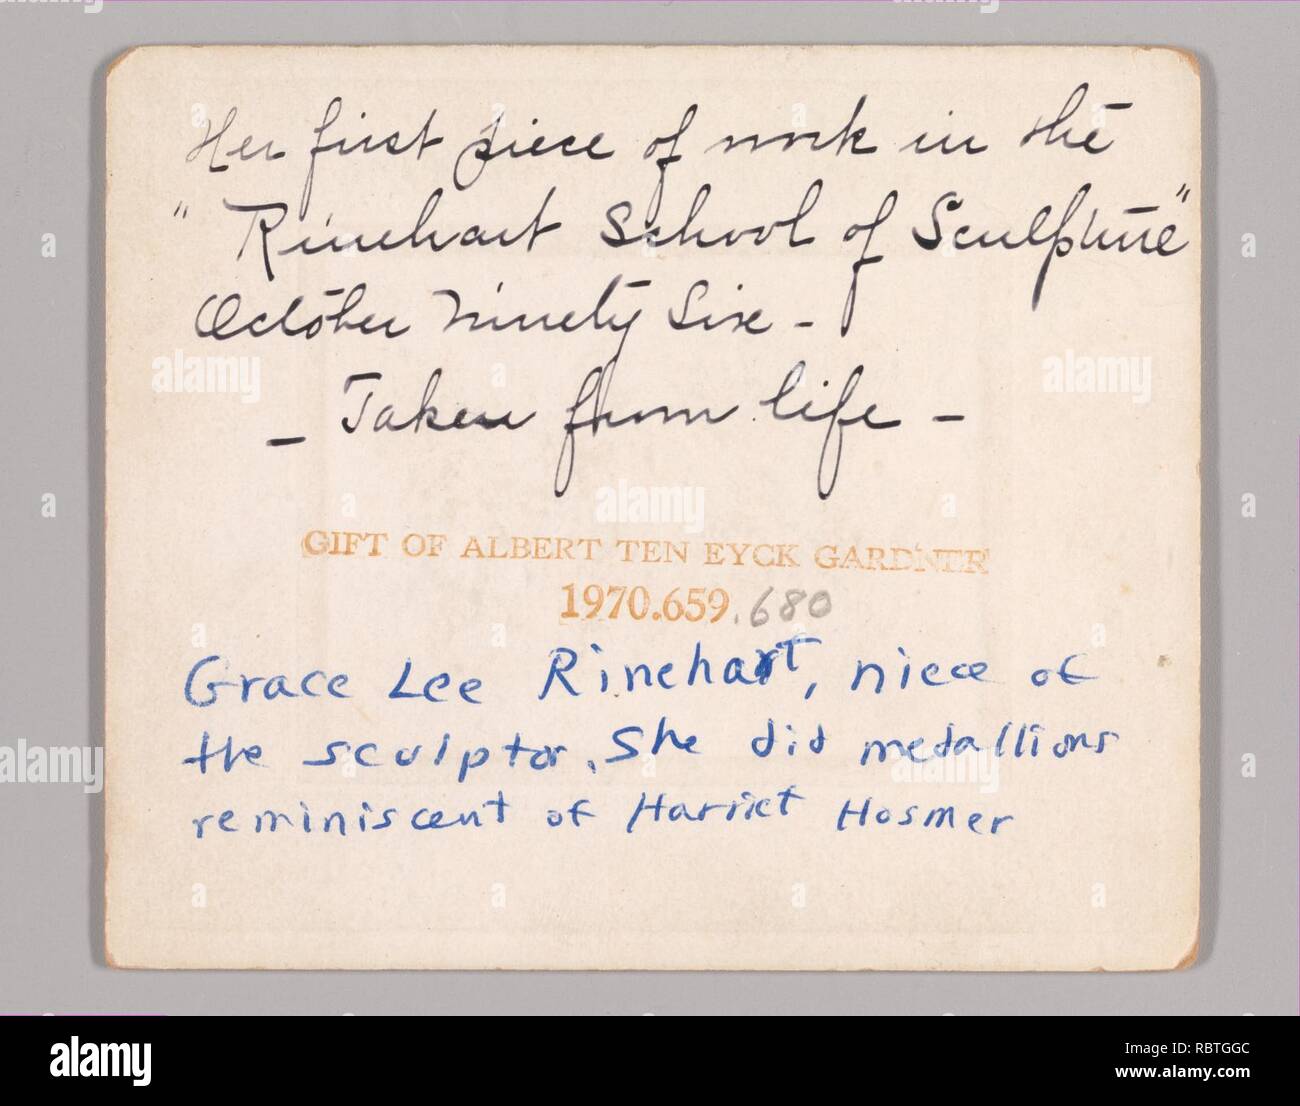 Her first piece of work in the
"Rinehart School of Sculpture"
October Ninety Six -
- Taken from life -
GIFT OF ALBERT TEN EYCK GARDNER
1970.659.680
Grace Lee Rinehart, niece of
the sculptor. She did medallions
reminiscent of Harriet Hosmer
alamy
Image ID: RBTGGC
www.alamy.com